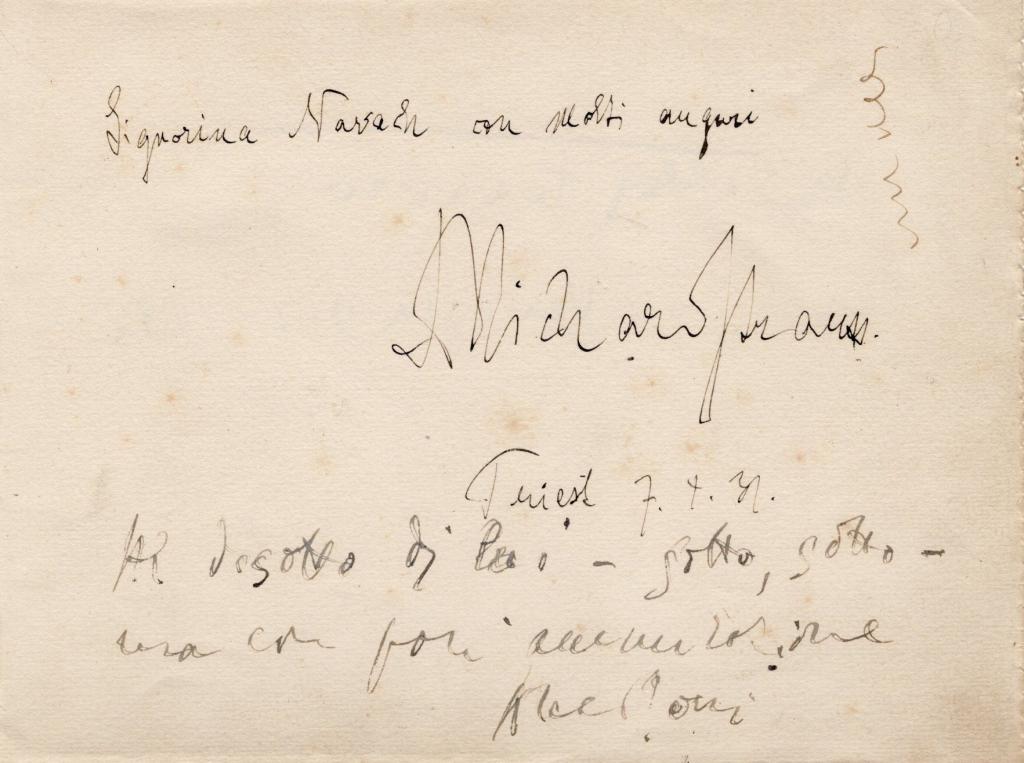 Signorina Navach con molti auguri
Dr Richard Strauss.
Triest 7. 4. 31.
Al disotto di Lui – sotto, sotto –
ma con pari ammirazione